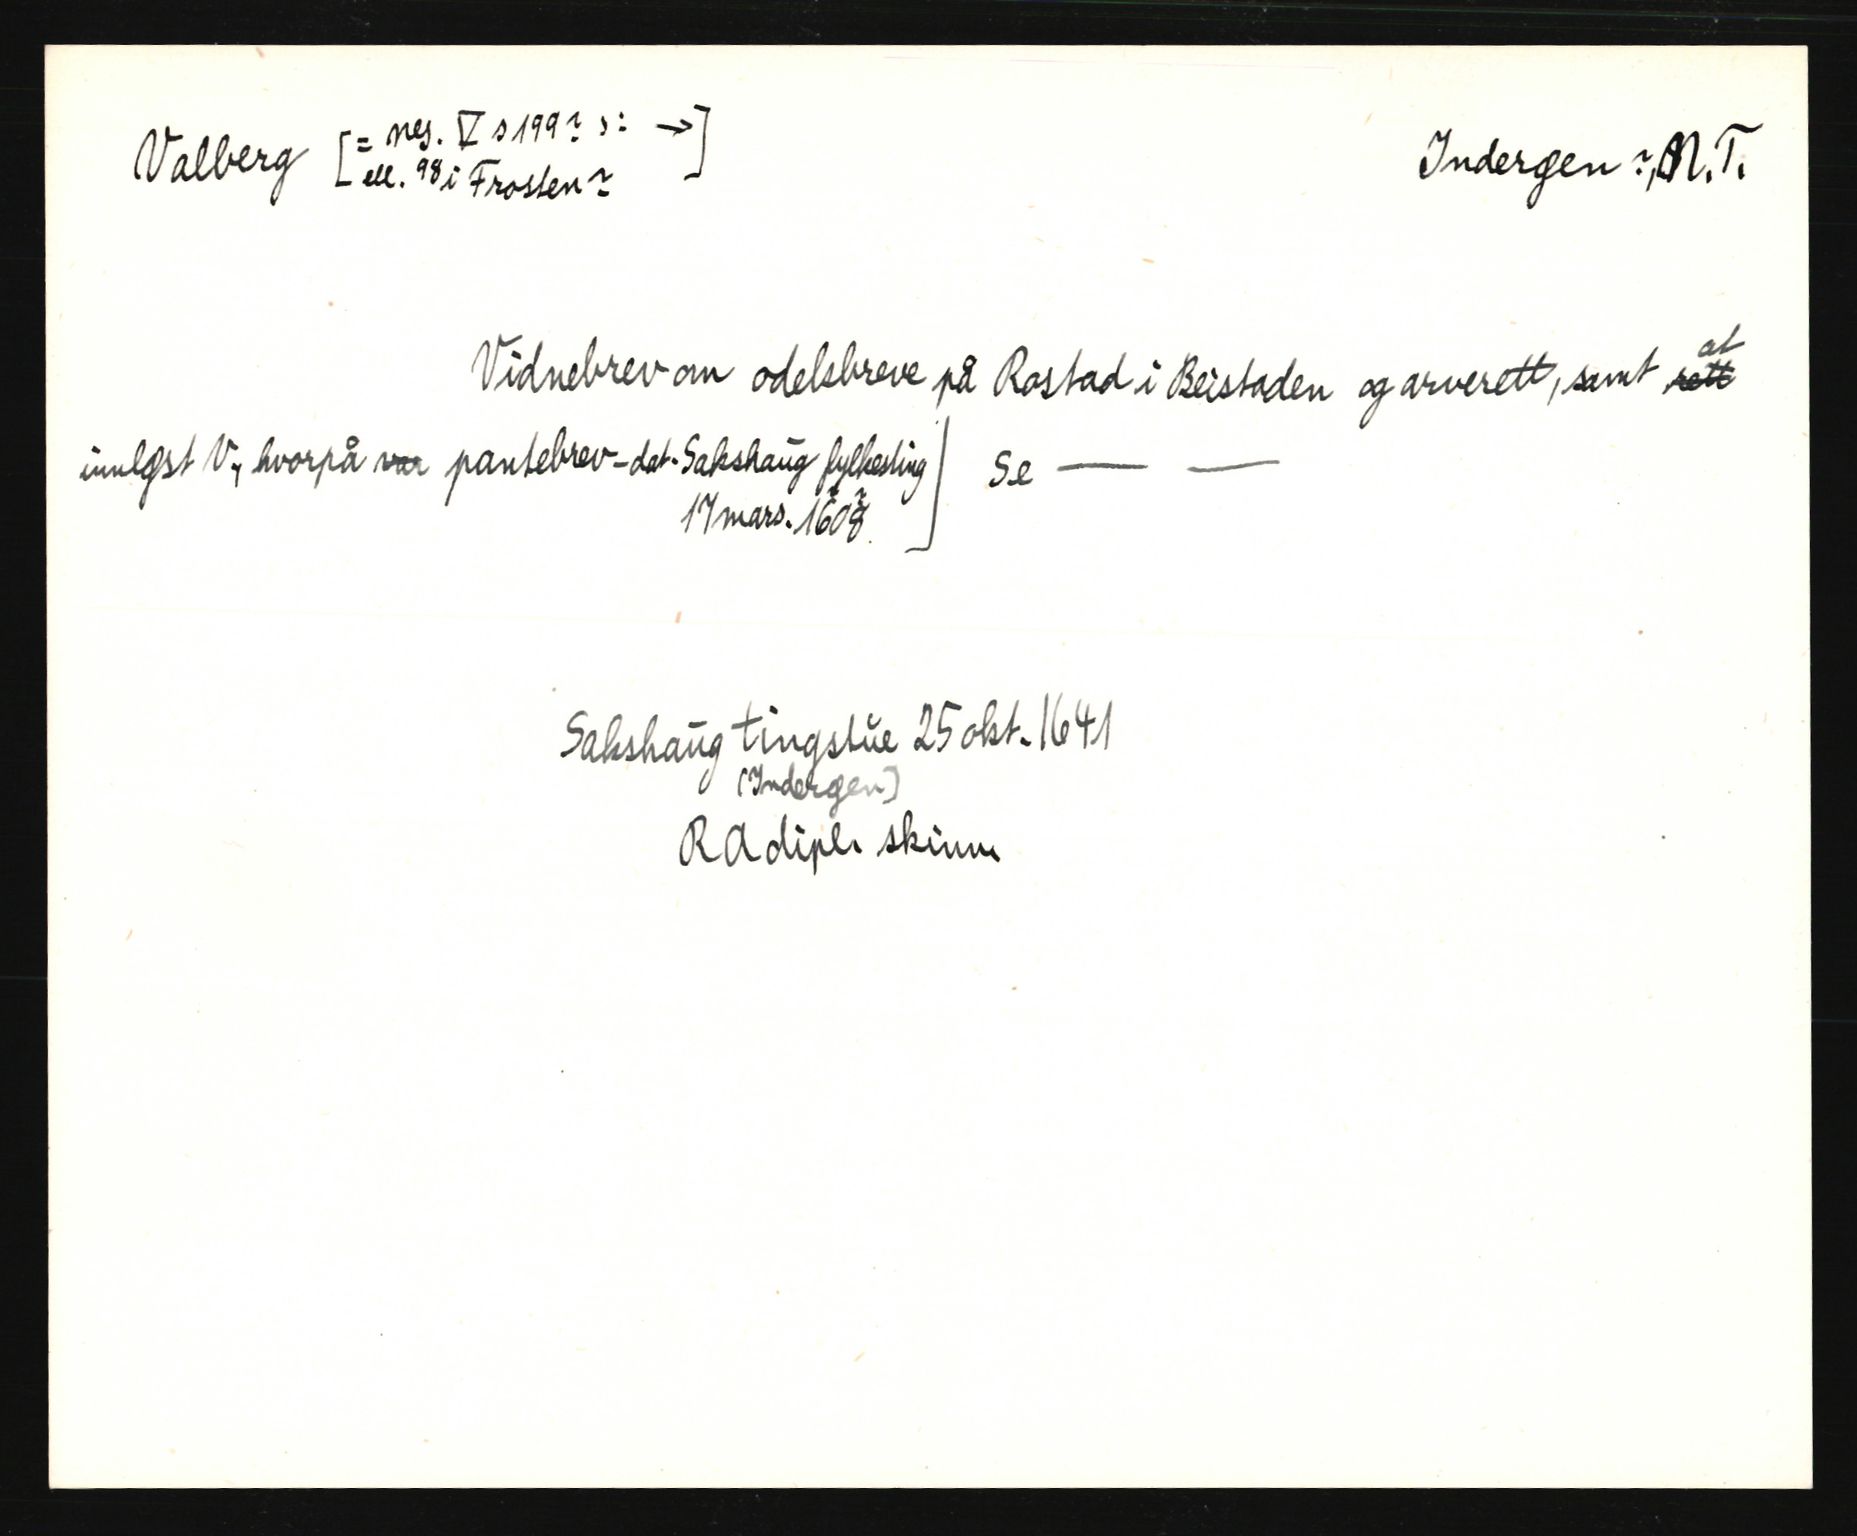 Valberg [= neg. V s 199? ɔ: →]
ell. 98 i Frosten?
Inderøen?, N.T.
Vidnebrev om odelsbreve på Rostad i Beistaden og arverett, samt rett at
innløst V., hvorpå var pantebrev - dat. Sakshaug fylkesting] Se — —
17 mars. 1608
Sakshaug tingstue 25 okt. 1641
[Inderøen]
RA dipl. skinn.